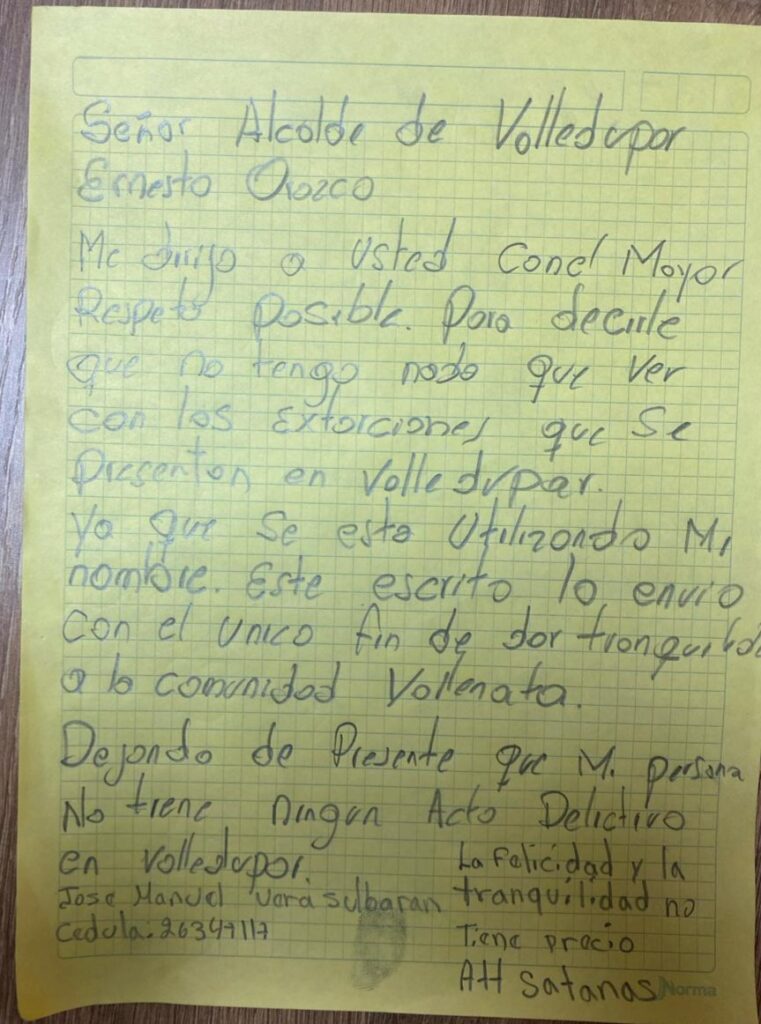 Señor Alcalde de Valledupar
Ernesto Orozco
Me dirijo a Usted Con el Mayor
Respeto posible. Para decirle
que no tengo nada que ver
con las Extorciones que Se
Presentan en Valledupar.
Ya que Se esta Utilizando Mi
nombre. Este escrito lo envio
Con el unico fin de dar tranquilida
a la comunidad Vallenata.
Dejando de Presente que Mi persona
No tiene ningun Acto Delictivo
en Valledupar.
Jose Manuel Vera Sulbaran
Cedula: 26347117
La Felicidad y la
tranquilidad no
Tiene precio
Att Satanas
Norma